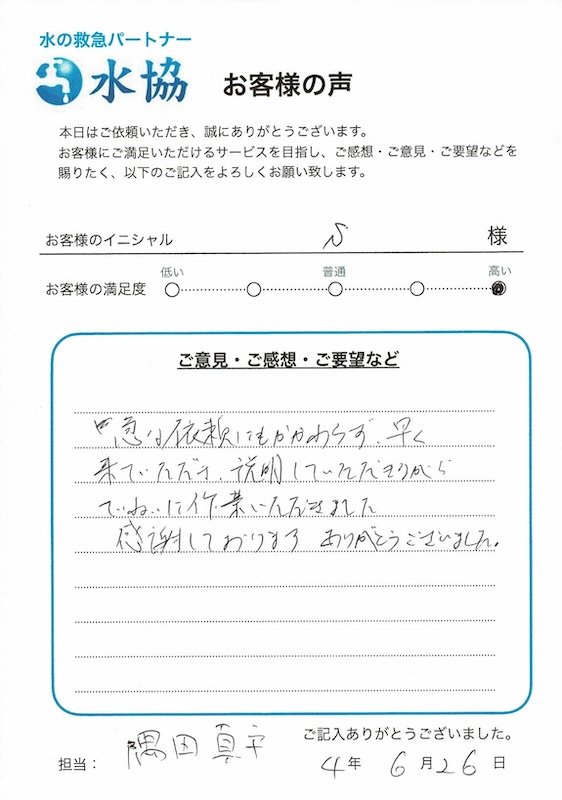 水の救急パートナー
水協 お客様の声
本日はご依頼いただき、誠にありがとうございます。
お客様にご満足いただけるサービスを目指し、ご感想・ご意見・ご要望などを
賜りたく、以下のご記入をよろしくお願い致します。
お客様のイニシャル S 様
低い 普通 高い
お客様の満足度
ご意見・ご感想・ご要望など
急な依頼にもかかわらず、早く
来ていただき、説明していただきながら
ていねいに作業いただきました
感謝しております ありがとうございました。
ご記入ありがとうございました。
担当: 隅田真
4年 6月26日